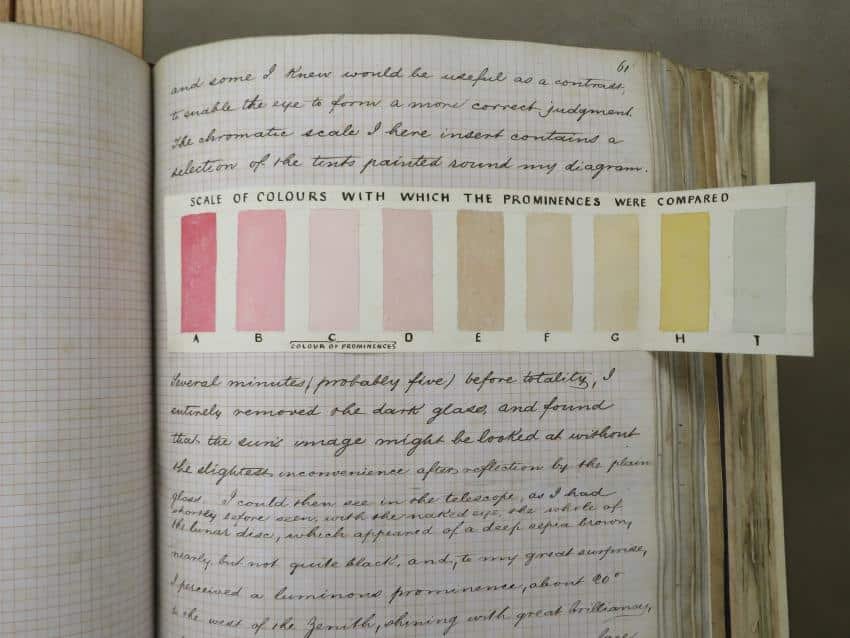 61
and some I knew would be useful as a contrast,
to enable the eye to form a more correct judgment.
The chromatic scale I here insert contains a
selection of the tints painted round my diagram.
SCALE OF COLOURS WITH WHICH THE PROMINENCES WERE COMPARED
A B C D E F G H I
COLOUR OF PROMINENCES
Several minutes (probably five) before totality, I
entirely removed the dark glass, and found
that the sun's image might be looked at without
the slightest inconvenience after reflection by the plain
glass. I could then see in the telescope, as I had
shortly before seen, with the naked eye, the whole of
the lunar disc, which appeared of a deep sepia brown,
nearly, but not quite black, and, to my great surprise,
I perceived a luminous prominence, about 20°
to the west of the Zenith, shining with great brilliancy,